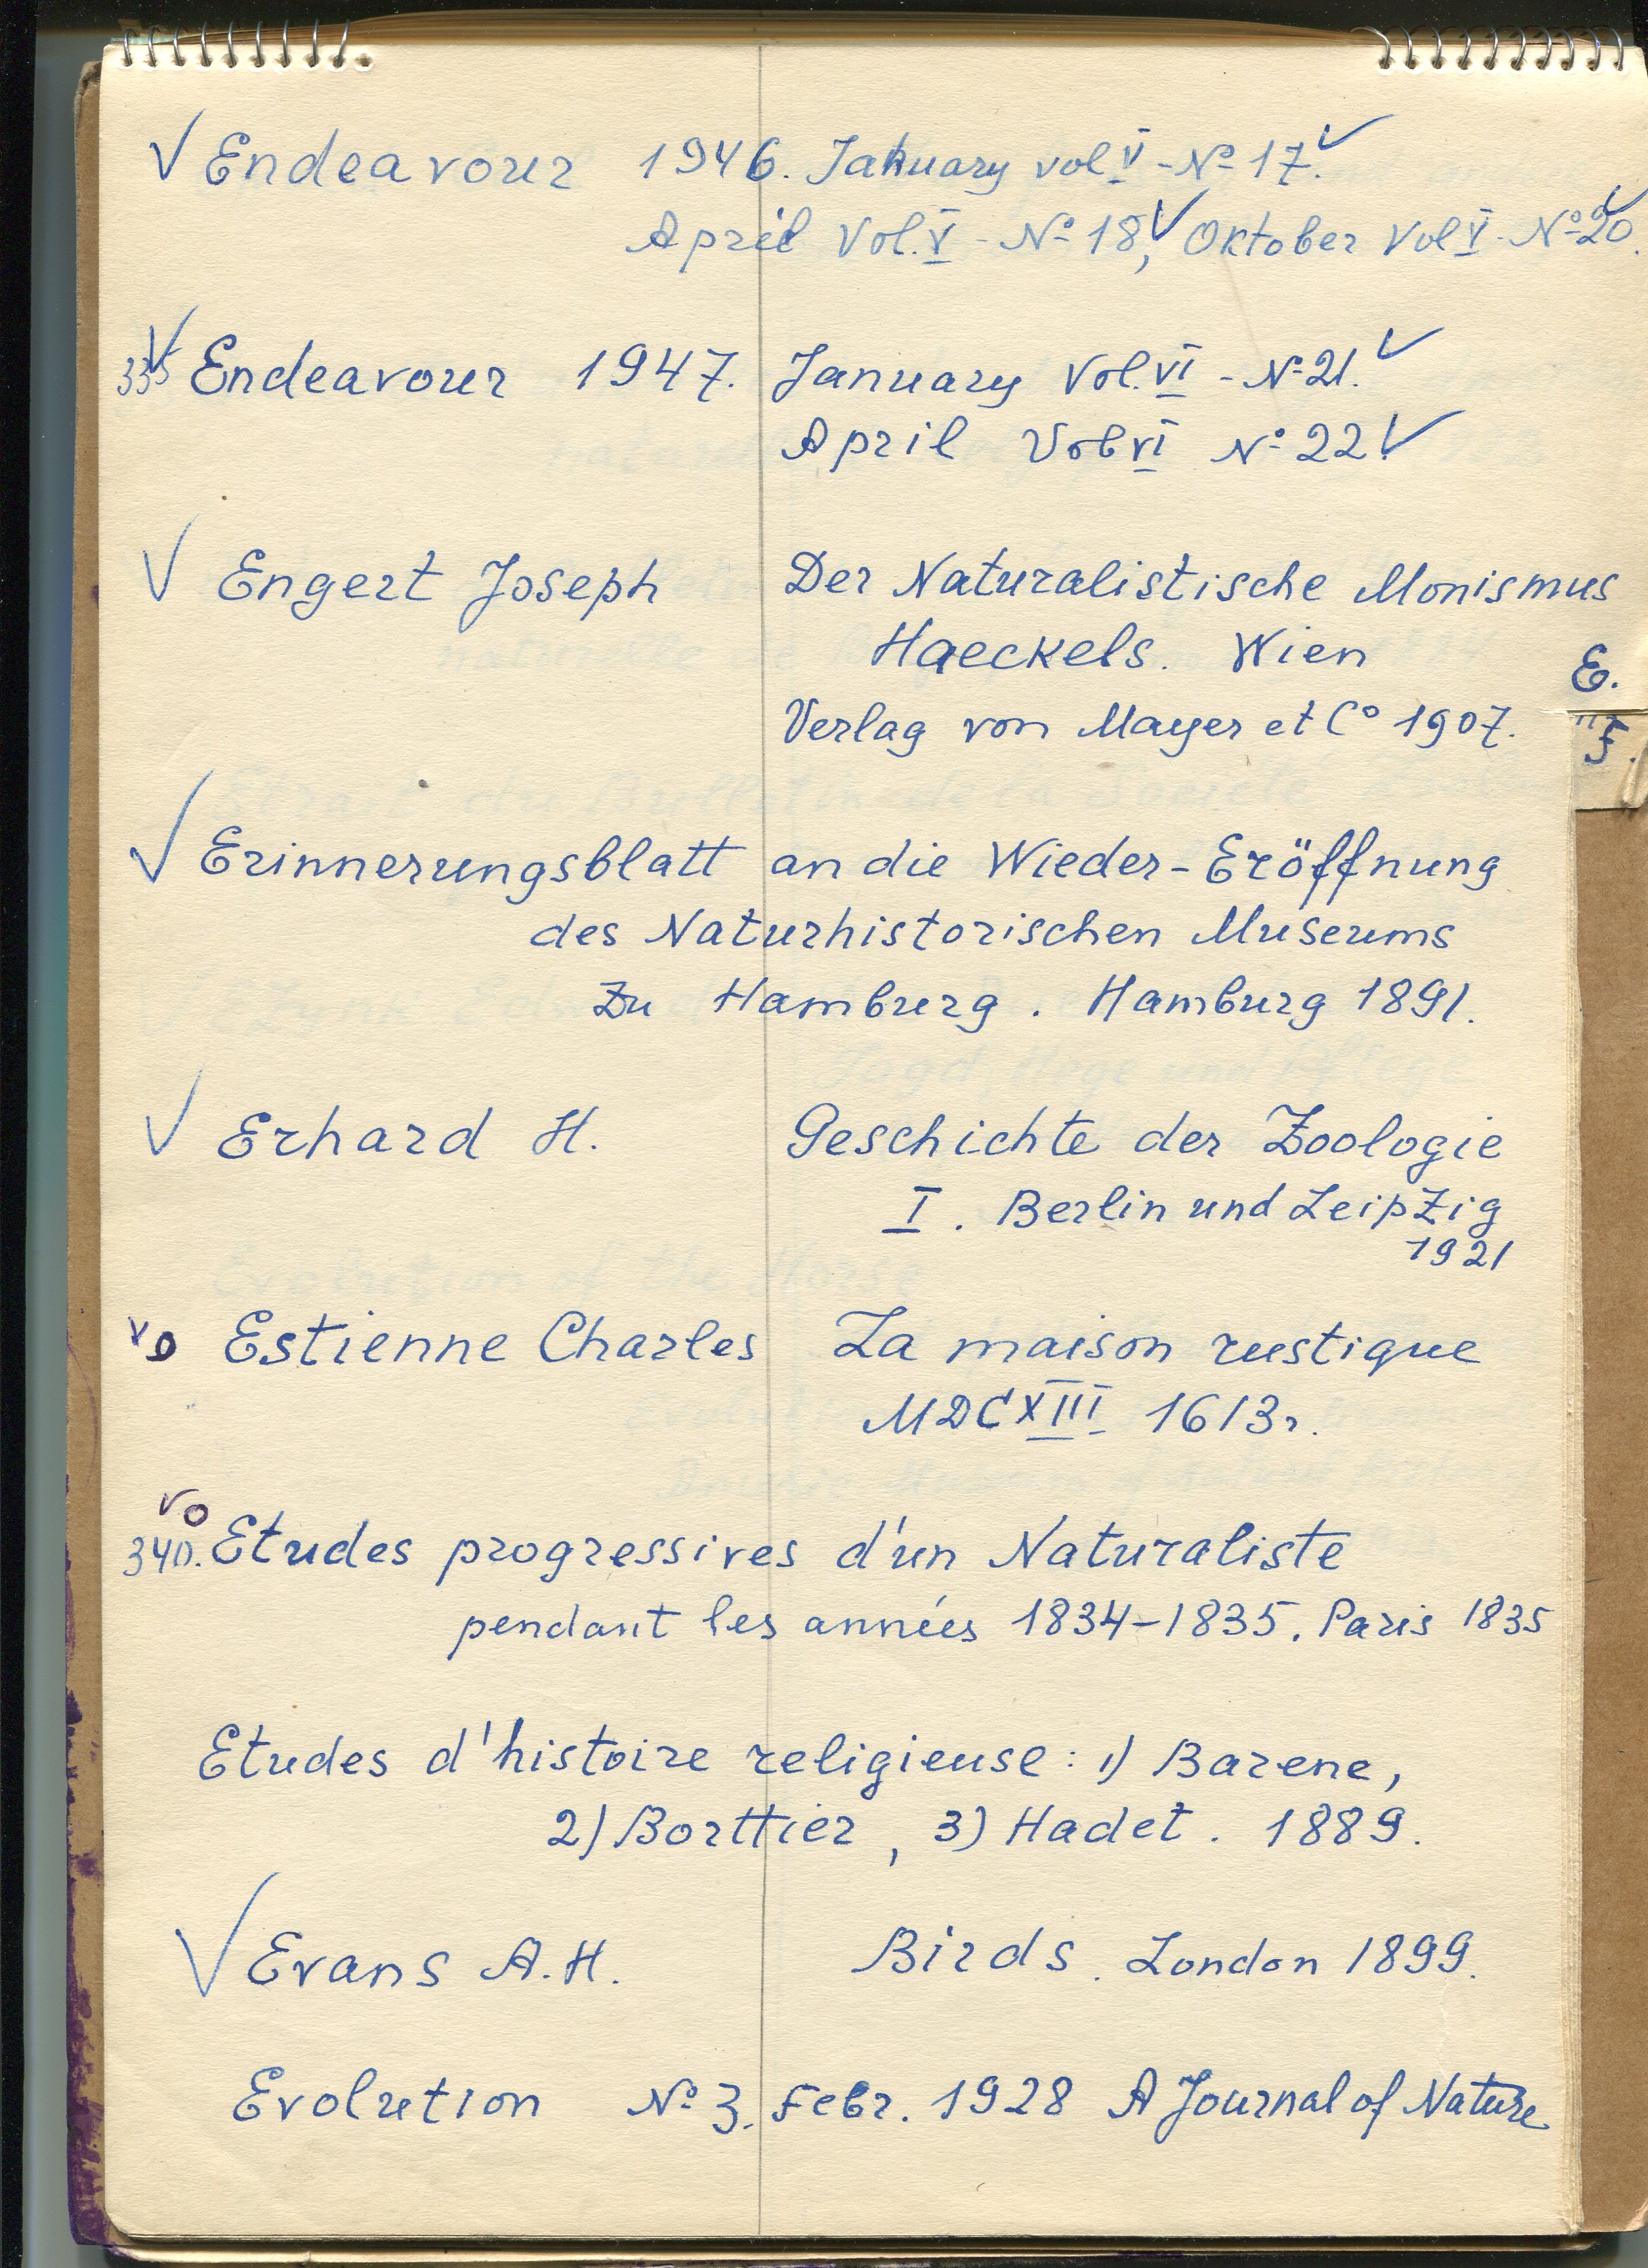 ✓ Endeavour 1946. January vol V - № 17. ✓
April Vol. V - № 18, ✓ Oktober Vol V - № 20. ✓
335 ✓ Endeavour 1947. January Vol. VI - № 21. ✓
April Vol VI № 22. ✓
✓ Engert Joseph Der Naturalistische Monismus
Haeckels. Wien
E.
Verlag von Mayer et C° 1907.
F.
✓ Erinnerungsblatt an die Wieder-Eröffnung
des Naturhistorischen Museums
zu Hamburg. Hamburg 1891.
✓ Erhard H. Geschichte der Zoologie
I. Berlin und Leipzig
1921
✓o Estienne Charles La maison rustique
MDCXIII 1613 г.
✓o
340. Etudes progressives d'un Naturaliste
pendant les années 1834-1835. Paris 1835
Etudes d'histoire religieuse: 1) Barene,
2) Borttier, 3) Hadet. 1889.
✓ Evans A. H. Birds. London 1899.
Evolution № 3. Febr. 1928 A Journal of Nature